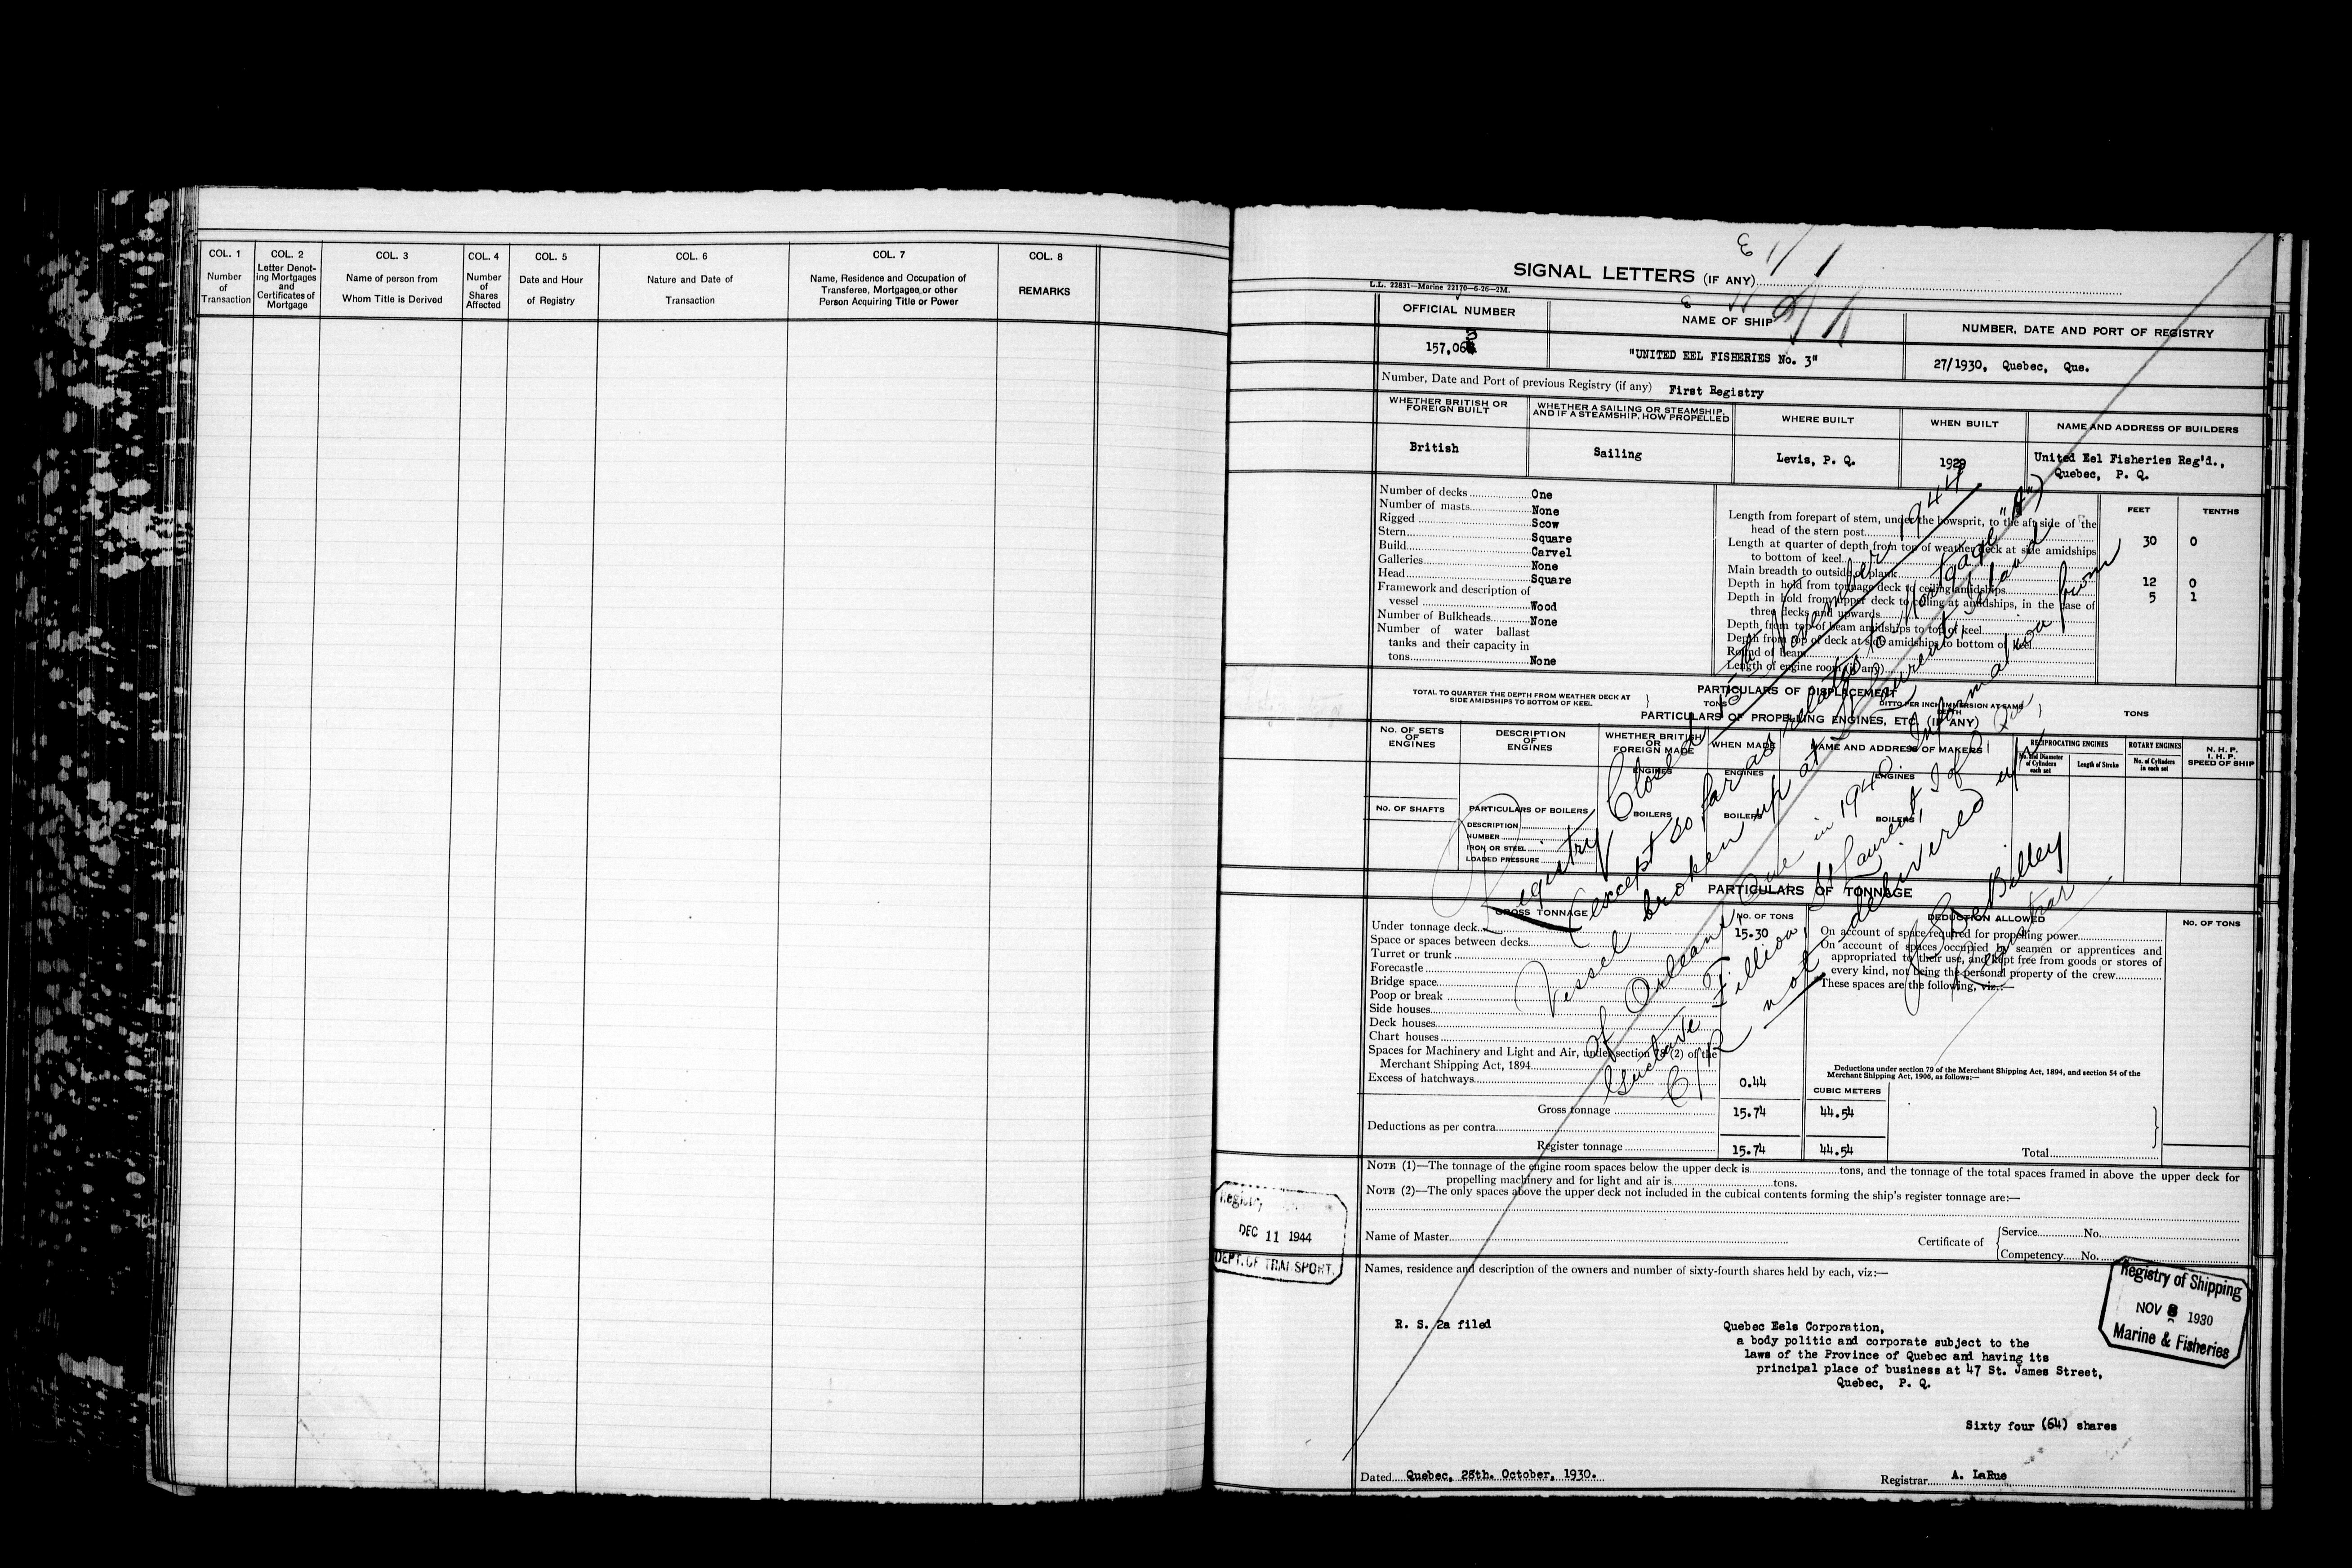 COL. 1
Number
of
Transaction
COL. 2
Letter Denot-
ing Mortgages
and
Certificates of
Mortgage
COL. 3
Name of person from
Whom Title is Derived
COL. 4
Number
of
Shares
Affected
COL. 5
Date and Hour
of Registry
COL. 6
Nature and Date of
Transaction
COL. 7
Name, Residence and Occupation of
Transferee, Mortgagee or other
Person Acquiring Title or Power
COL. 8
REMARKS
SIGNAL LETTERS (IF ANY)
L.L. 22831—Marine 22170—6-26—2M.
OFFICIAL NUMBER
157,063
NAME OF SHIP
"UNITED EEL FISHERIES No. 3"
NUMBER, DATE AND PORT OF REGISTRY
27/1930, Quebec, Que.
Number, Date and Port of previous Registry (if any) First Registry
WHETHER BRITISH OR
FOREIGN BUILT
British
WHETHER A SAILING OR STEAMSHIP,
AND IF A STEAMSHIP, HOW PROPELLED
Sailing
WHERE BUILT
Levis, P. Q.
WHEN BUILT
1929
NAME AND ADDRESS OF BUILDERS
United Eel Fisheries Reg'd.,
Quebec, P. Q.
Number of decks One
Number of masts None
Rigged Scow
Stern Square
Build Carvel
Galleries None
Head Square
Framework and description of
vessel Wood
Number of Bulkheads None
Number of water ballast
tanks and their capacity in
tons None
FEET TENTHS
Length from forepart of stem, under the bowsprit, to the aft side of the
head of the stern post 30 0
Length at quarter of depth from top of weather deck at side amidships
to bottom of keel
Main breadth to outside of plank 12 0
Depth in hold from tonnage deck to ceiling amidships 5 1
Depth in hold from upper deck to ceiling at amidships, in the case of
three decks and upwards
Depth from top of beam amidships to top of keel
Depth from top of deck at side amidships to bottom of keel
Round of beam
Length of engine room (if any)
PARTICULARS OF DISPLACEMENT
TOTAL TO QUARTER THE DEPTH FROM WEATHER DECK AT
SIDE AMIDSHIPS TO BOTTOM OF KEEL
TONS
DITTO PER INCH IMMERSION AT SAME
DEPTH
TONS
PARTICULARS OF PROPELLING ENGINES, ETC. (IF ANY)
NO. OF SETS
OF
ENGINES
DESCRIPTION
OF
ENGINES
WHETHER BRITISH
OR
FOREIGN MADE
WHEN MADE
NAME AND ADDRESS OF MAKERS
RECIPROCATING ENGINES
No. and Diameter
of Cylinders
each set
Length of Stroke
ROTARY ENGINES
No. of Cylinders
in each set
N. H. P.
I. H. P.
SPEED OF SHIP
ENGINES
ENGINES
ENGINES
NO. OF SHAFTS
PARTICULARS OF BOILERS
DESCRIPTION
NUMBER
IRON OR STEEL
LOADED PRESSURE
BOILERS
BOILERS
BOILERS
Registry Closed 15th November 1944
(except so far as relates to Mortgage "A")
Vessel broken up at St Laurent, Island
of Orleans, Que in 1940. Information from
Gustave Fillion, St Laurent, I of O, Que,
C/R not delivered up.
Registrar
PARTICULARS OF TONNAGE
GROSS TONNAGE
NO. OF TONS
Under tonnage deck 15.30
Space or spaces between decks
Turret or trunk
Forecastle
Bridge space
Poop or break
Side houses
Deck houses
Chart houses
Spaces for Machinery and Light and Air, under section 78 (2) of the
Merchant Shipping Act, 1894
Excess of hatchways 0.44
CUBIC METERS
Gross tonnage 15.74 44.54
Deductions as per contra
Register tonnage 15.74 44.54
DEDUCTION ALLOWED
NO. OF TONS
On account of space required for propelling power
On account of spaces occupied by seamen or apprentices and
appropriated to their use, and kept free from goods or stores of
every kind, not being the personal property of the crew
These spaces are the following, viz.:—
Deductions under section 79 of the Merchant Shipping Act, 1894, and section 54 of the
Merchant Shipping Act, 1906, as follows:—
Total
NOTE (1)—The tonnage of the engine room spaces below the upper deck is tons, and the tonnage of the total spaces framed in above the upper deck for
propelling machinery and for light and air is tons.
NOTE (2)—The only spaces above the upper deck not included in the cubical contents forming the ship's register tonnage are:—
Registry
DEC 11 1944
DEPT. OF TRANSPORT.
Name of Master
Certificate of
Service No.
Competency No.
Names, residence and description of the owners and number of sixty-fourth shares held by each, viz:—
Registry of Shipping
NOV 8 1930
Marine & Fisheries
R. S. 2a filed
Quebec Eels Corporation,
a body politic and corporate subject to the
laws of the Province of Quebec and having its
principal place of business at 47 St. James Street,
Quebec, P. Q.
Sixty four (64) shares
Dated Quebec, 28th. October, 1930.
Registrar A. LaRue